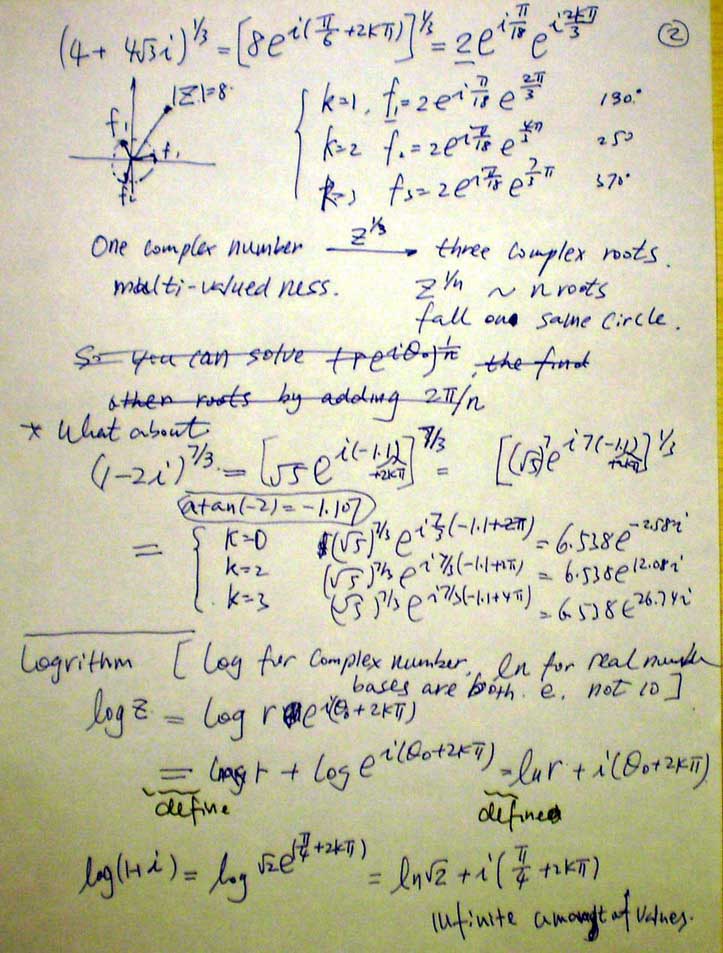 (4 + 4√3i)^1/3 = [8e^i(π/6 + 2kπ)]^1/3 = 2e^iπ/18 e^i2kπ/3
②
|Z|=8
f₁ f₁ f₂
k=1, f₁=2e^iπ/18 e^2π/3 130°
k=2 f₂=2e^iπ/18 e^4π/3 250
k=3 f₃=2e^iπ/18 e^7/3π 370°
One complex number Z^1/3 → three complex roots.
multi-valuedness. Z^1/n ~ n roots
fall on same circle.
So you can solve (re^iθ₀)^1/n, the find
other roots by adding 2π/n
* What about
(1-2i)^7/3 = [√5 e^i(-1.1+2kπ)]^7/3 = [(√5)^7 e^i7(-1.1+2kπ)]^1/3
atan(-2) = -1.107
= { k=0 (√5)^7/3 e^i7/3(-1.1+2π) = 6.538e^-2.582i
k=2 (√5)^7/3 e^i7/3(-1.1+2π) = 6.538e^12.08i
k=3 (√5)^7/3 e^i7/3(-1.1+4π) = 6.538e^26.74i
Logrithm [Log for complex number, ln for real number
bases are both e. not 10]
log z = log r e^i(θ₀+2kπ)
= log r + log e^i(θ₀+2kπ) = ln r + i(θ₀+2kπ)
define define
log(1+i) = log √2e^(π/4+2kπ) = ln√2 + i(π/4 + 2kπ)
infinite amongt of values.